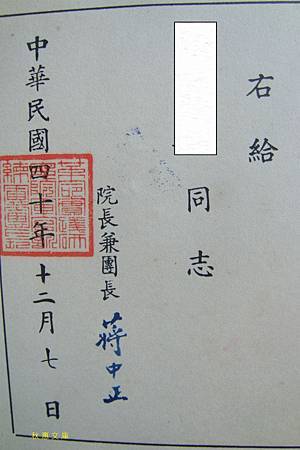 右給
同志
院長兼團長 蔣中正
中華民國四十年十二月七日
秋惠文庫